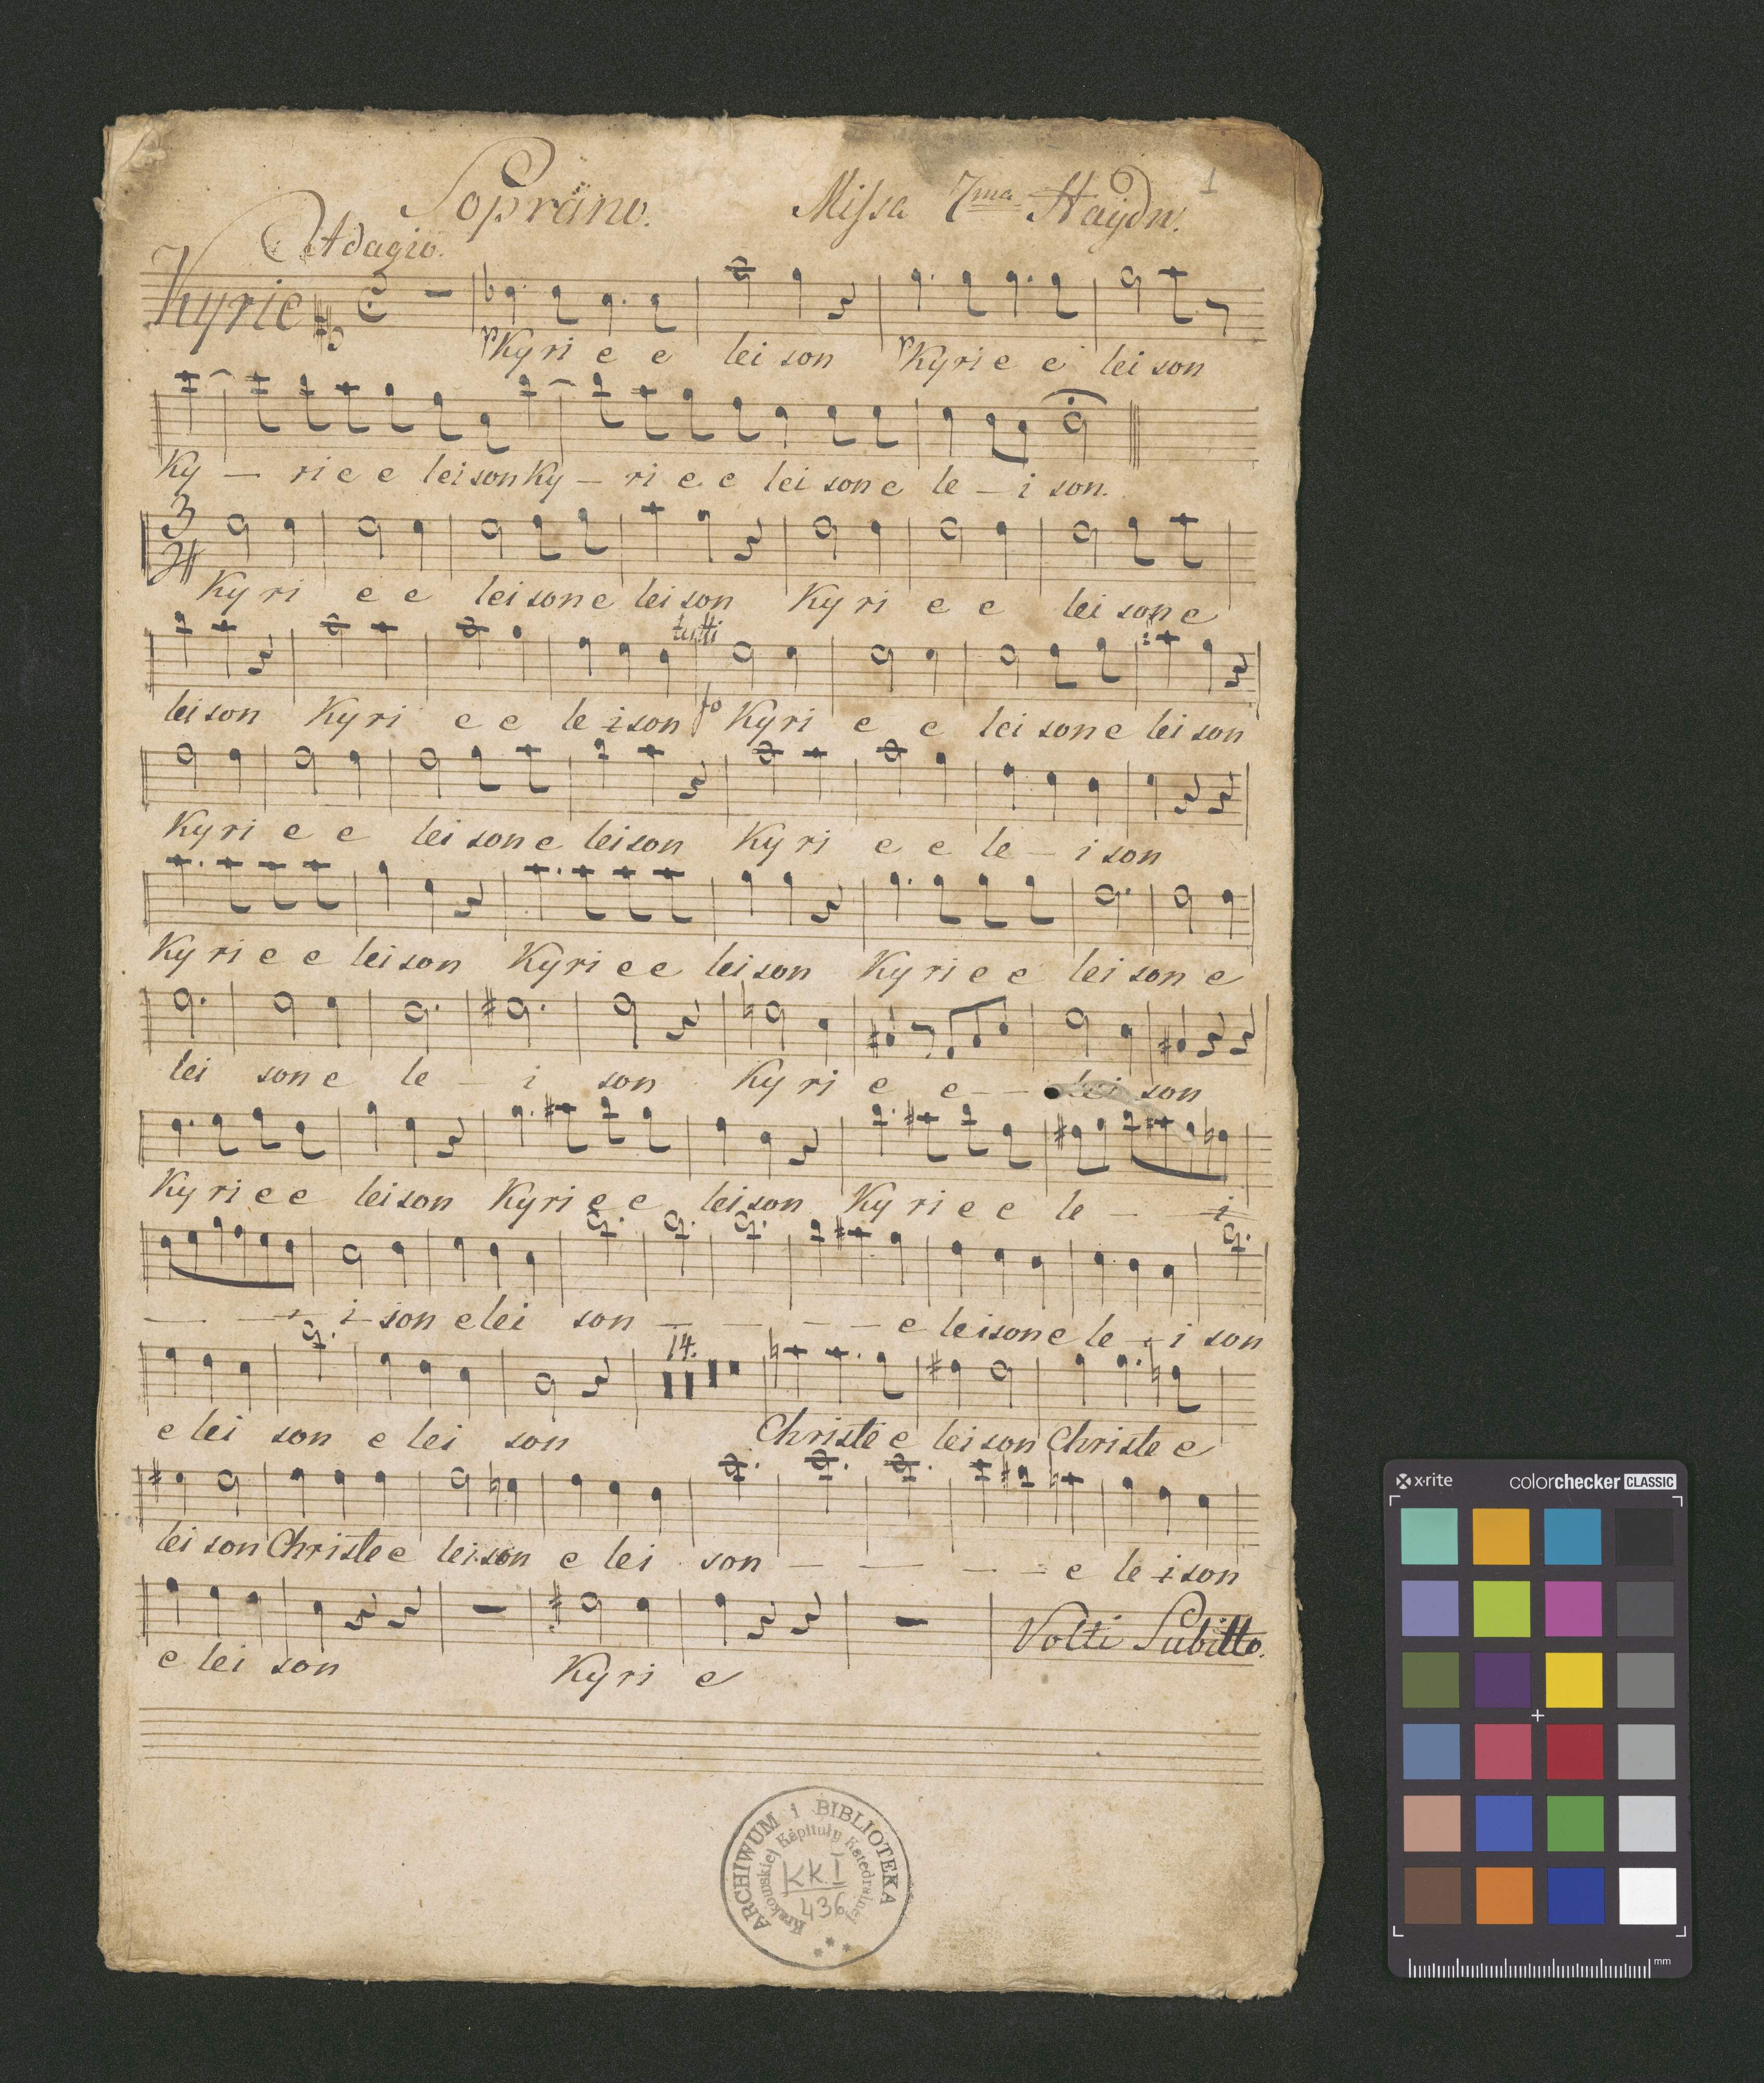 Soprano. Missa 7ma Haÿdn. 1
Adagio.
Kyrie
p Kyri e e lei son p Kyrie e lei son
Ky — ri e e lei son Ky — ri e e lei son e le — i son.
3
4
Kyri e e lei son e lei son Kyri e e lei son e
tutti
lei son Kyri e e le i son fo Kyri e e lei son e lei son
Kyri e e lei son e lei son Kyri e e le — i son
Kyri e e lei son Kyri e e lei son Kyri e e lei son e
lei son e le — i son Kyri e e — — lei son
Kyri e e lei son Kyri e e lei son Kyri e e le — i
— — i son e lei son — — — — e lei son e le — i son
14.
e lei son e lei son Christe e lei son Christe e
lei son Christe e lei son e lei son — — — e le i son
e lei son Kyri e
Volti Subitto.
ARCHIWUM i BIBLIOTEKA
Krakowskiej Kapituły Katedralnej
KK.I
436
x·rite colorchecker CLASSIC
mm